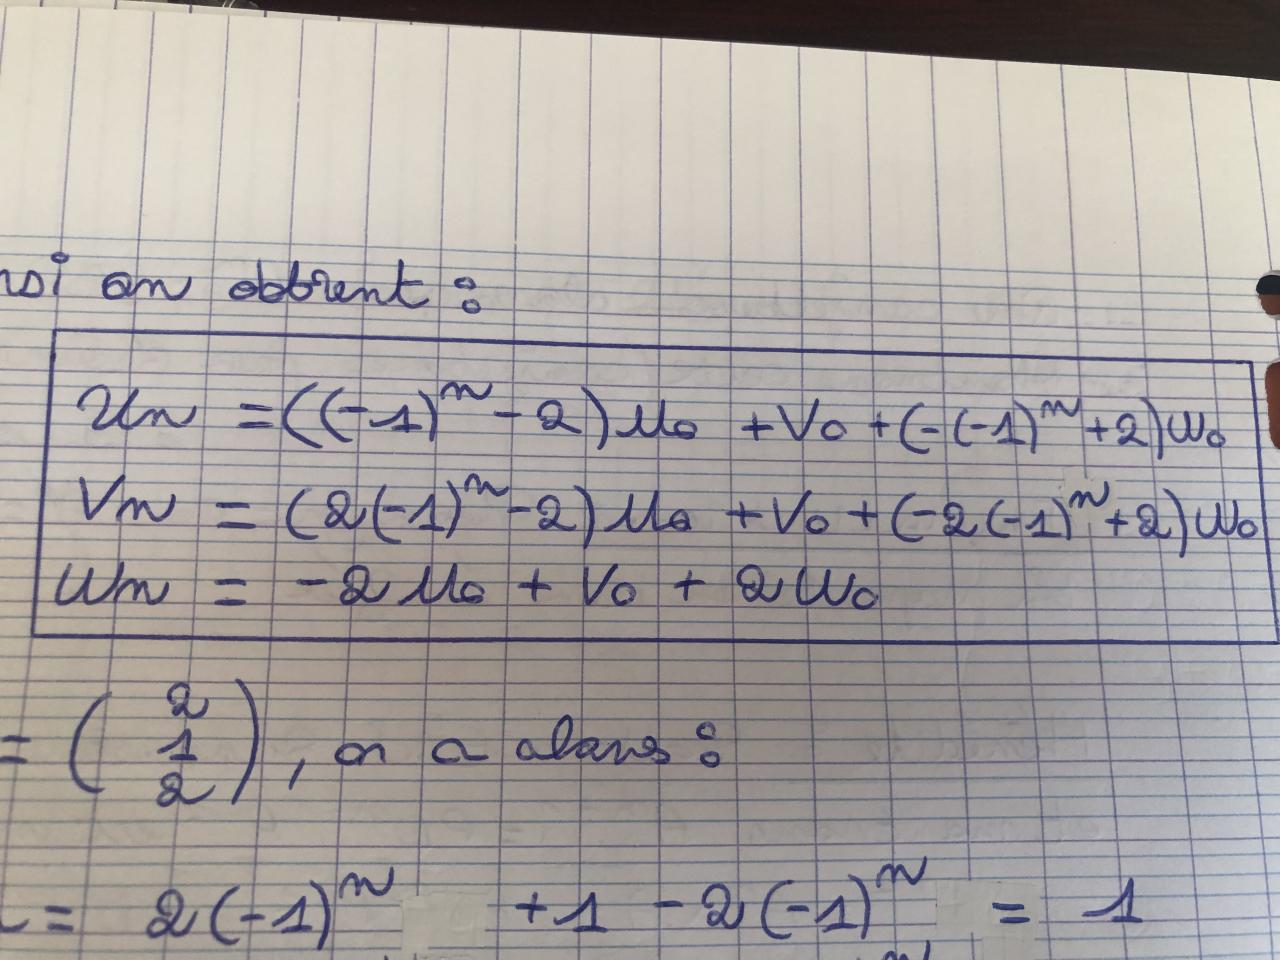 nsi on obtient :
Un = ((-1)^n - 2) U0 + V0 + (-(-1)^n + 2) W0
Vn = (2(-1)^n - 2) U0 + V0 + (-2(-1)^n + 2) W0
Wn = -2 U0 + V0 + 2 W0
= (2 1 2), on a alors :
= 2(-1)^n + 1 - 2(-1)^n = 1